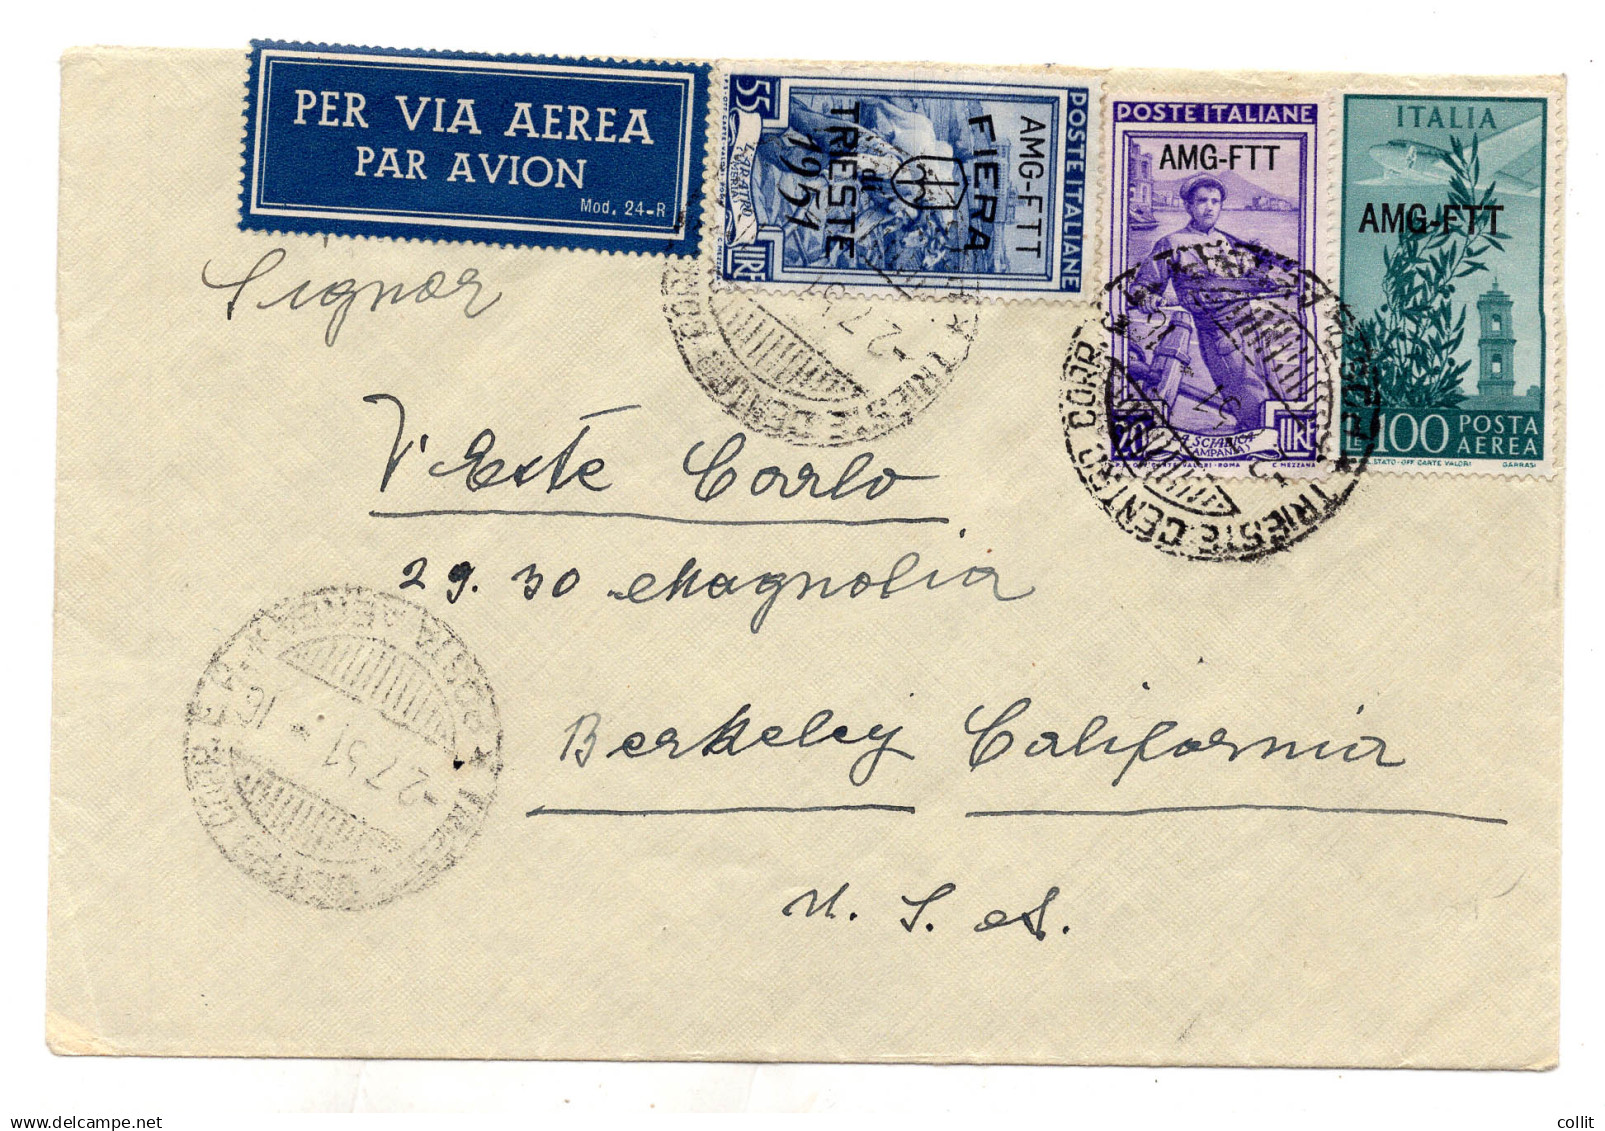 PER VIA AEREA
PAR AVION
Mod. 24-R
POSTE ITALIANE
AMG-FTT
FIERA
di
TRIESTE
1951
55 LIRE
POSTE ITALIANE
AMG-FTT
20 LIRE
LA SCIABICA
(CAMPANIA)
C. MEZZANA
ITALIA
AMG-FTT
L. 100 POSTA
AEREA
TRIESTE CENTRO CORR.
-2.7.51
TRIESTE CENTRO CORR.
POSTA AEREA
-2.7.51.-16
Signor
Carlo
29.30 Magnolia
Berkeley California
U. S. A.
collit